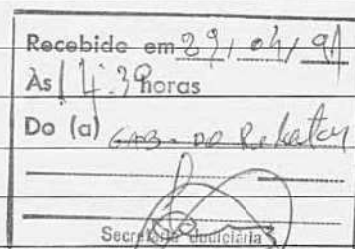 Recebido em 29/04/91
Às 14:39 horas
Do (a) GAB - DO Relator
Secretaria Judiciária